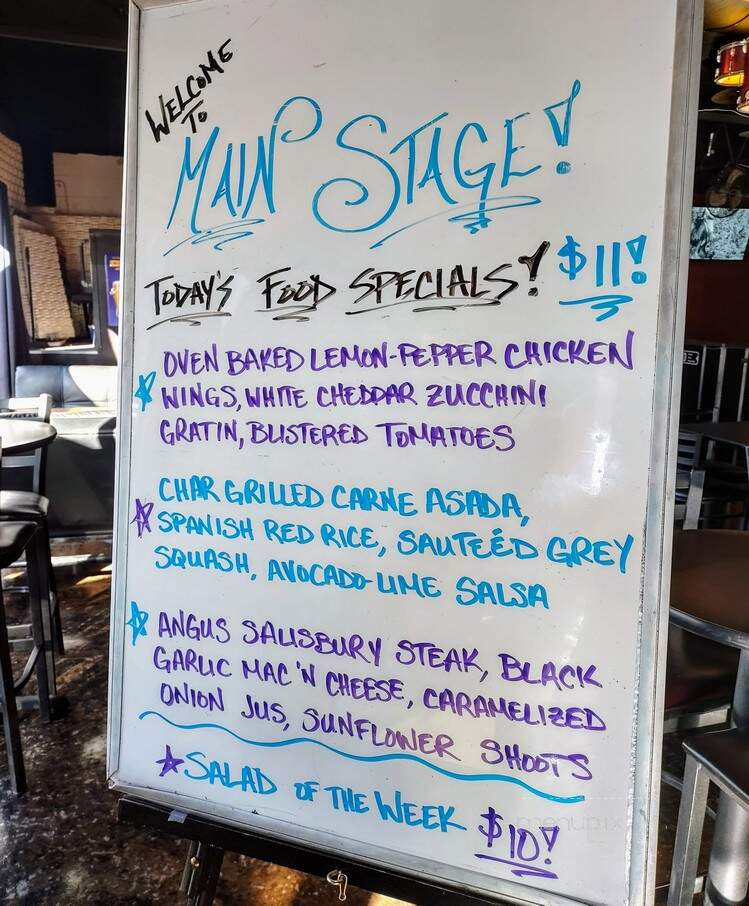 WELCOME
TO
MAIN STAGE!
TODAY'S FOOD SPECIALS! $11!
OVEN BAKED LEMON-PEPPER CHICKEN
WINGS, WHITE CHEDDAR ZUCCHINI
GRATIN, BLISTERED TOMATOES
CHAR GRILLED CARNE ASADA,
SPANISH RED RICE, SAUTEÉD GREY
SQUASH, AVOCADO-LIME SALSA
ANGUS SALISBURY STEAK, BLACK
GARLIC MAC 'N CHEESE, CARAMELIZED
ONION JUS, SUNFLOWER SHOOTS
SALAD OF THE WEEK $10!
menupix